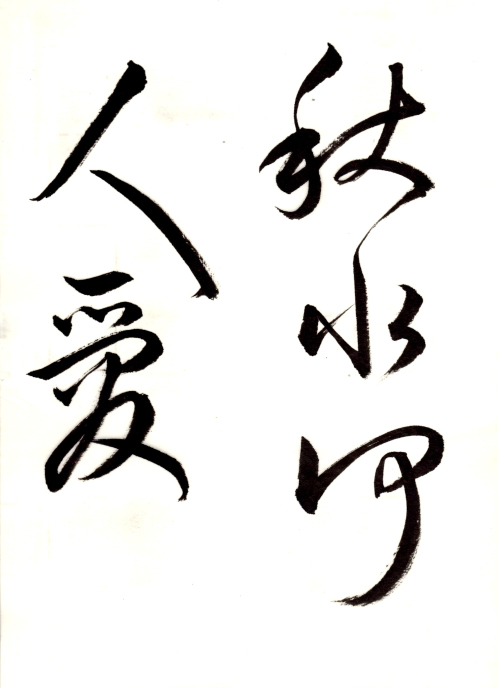 秋水何
人愛